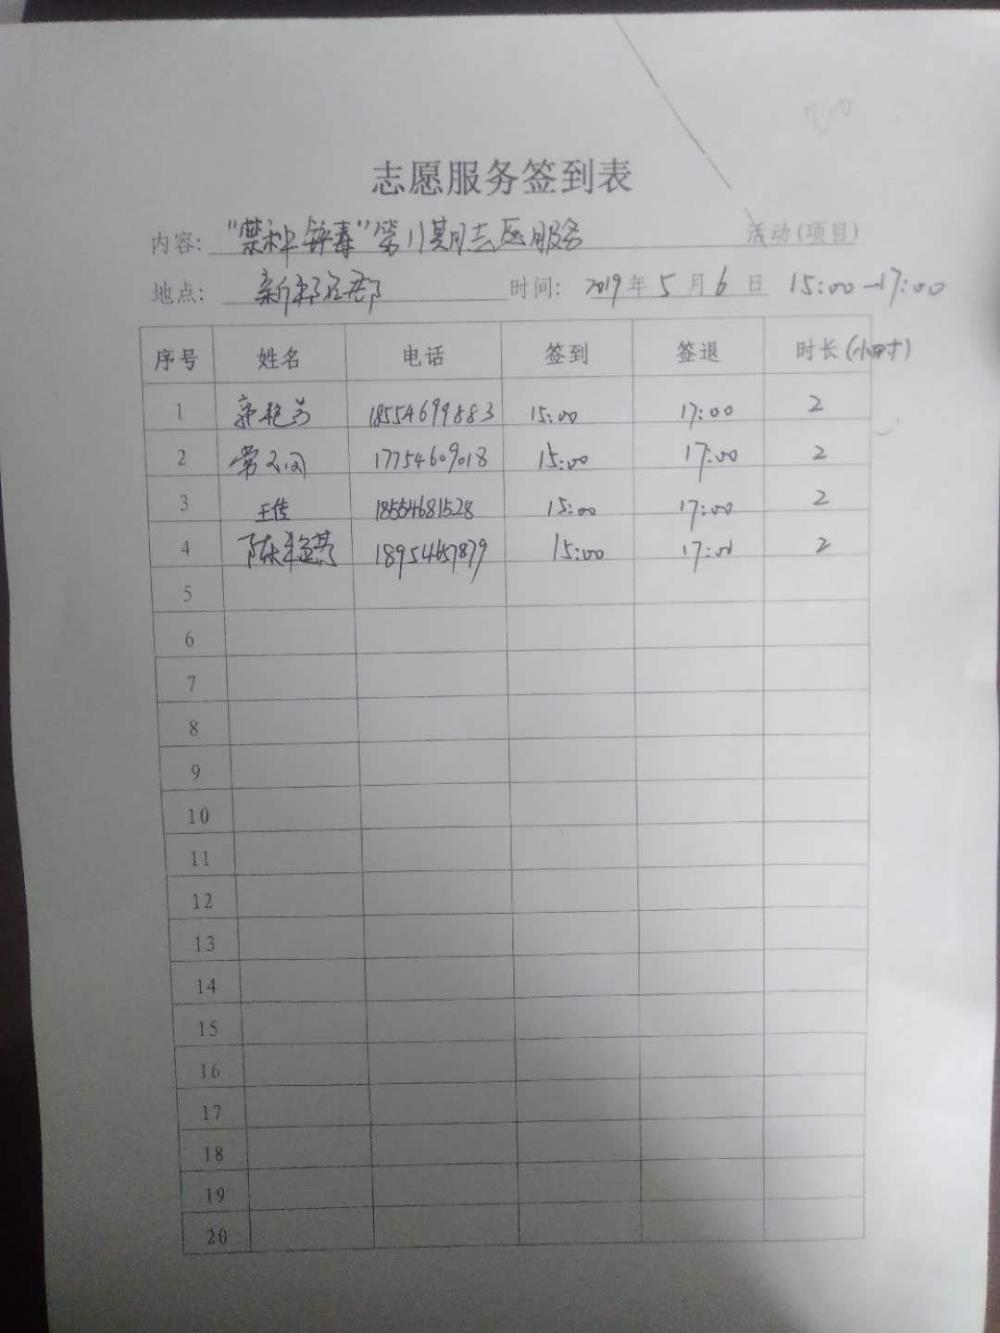 志愿服务签到表
内容: "禁种铲毒"第11期志愿服务 活动(项目)
地点: 时间: 2019年5月6日 15:00-17:00
序号 姓名 电话 签到 签退 时长(小时)
1 18554699883 15:00 17:00 2
2 17754609018 15:00 17:00 2
3 王佳 18554681528 15:00 17:00 2
4 18954657879 15:00 17:00 2
5
6
7
8
9
10
11
12
13
14
15
16
17
18
19
20